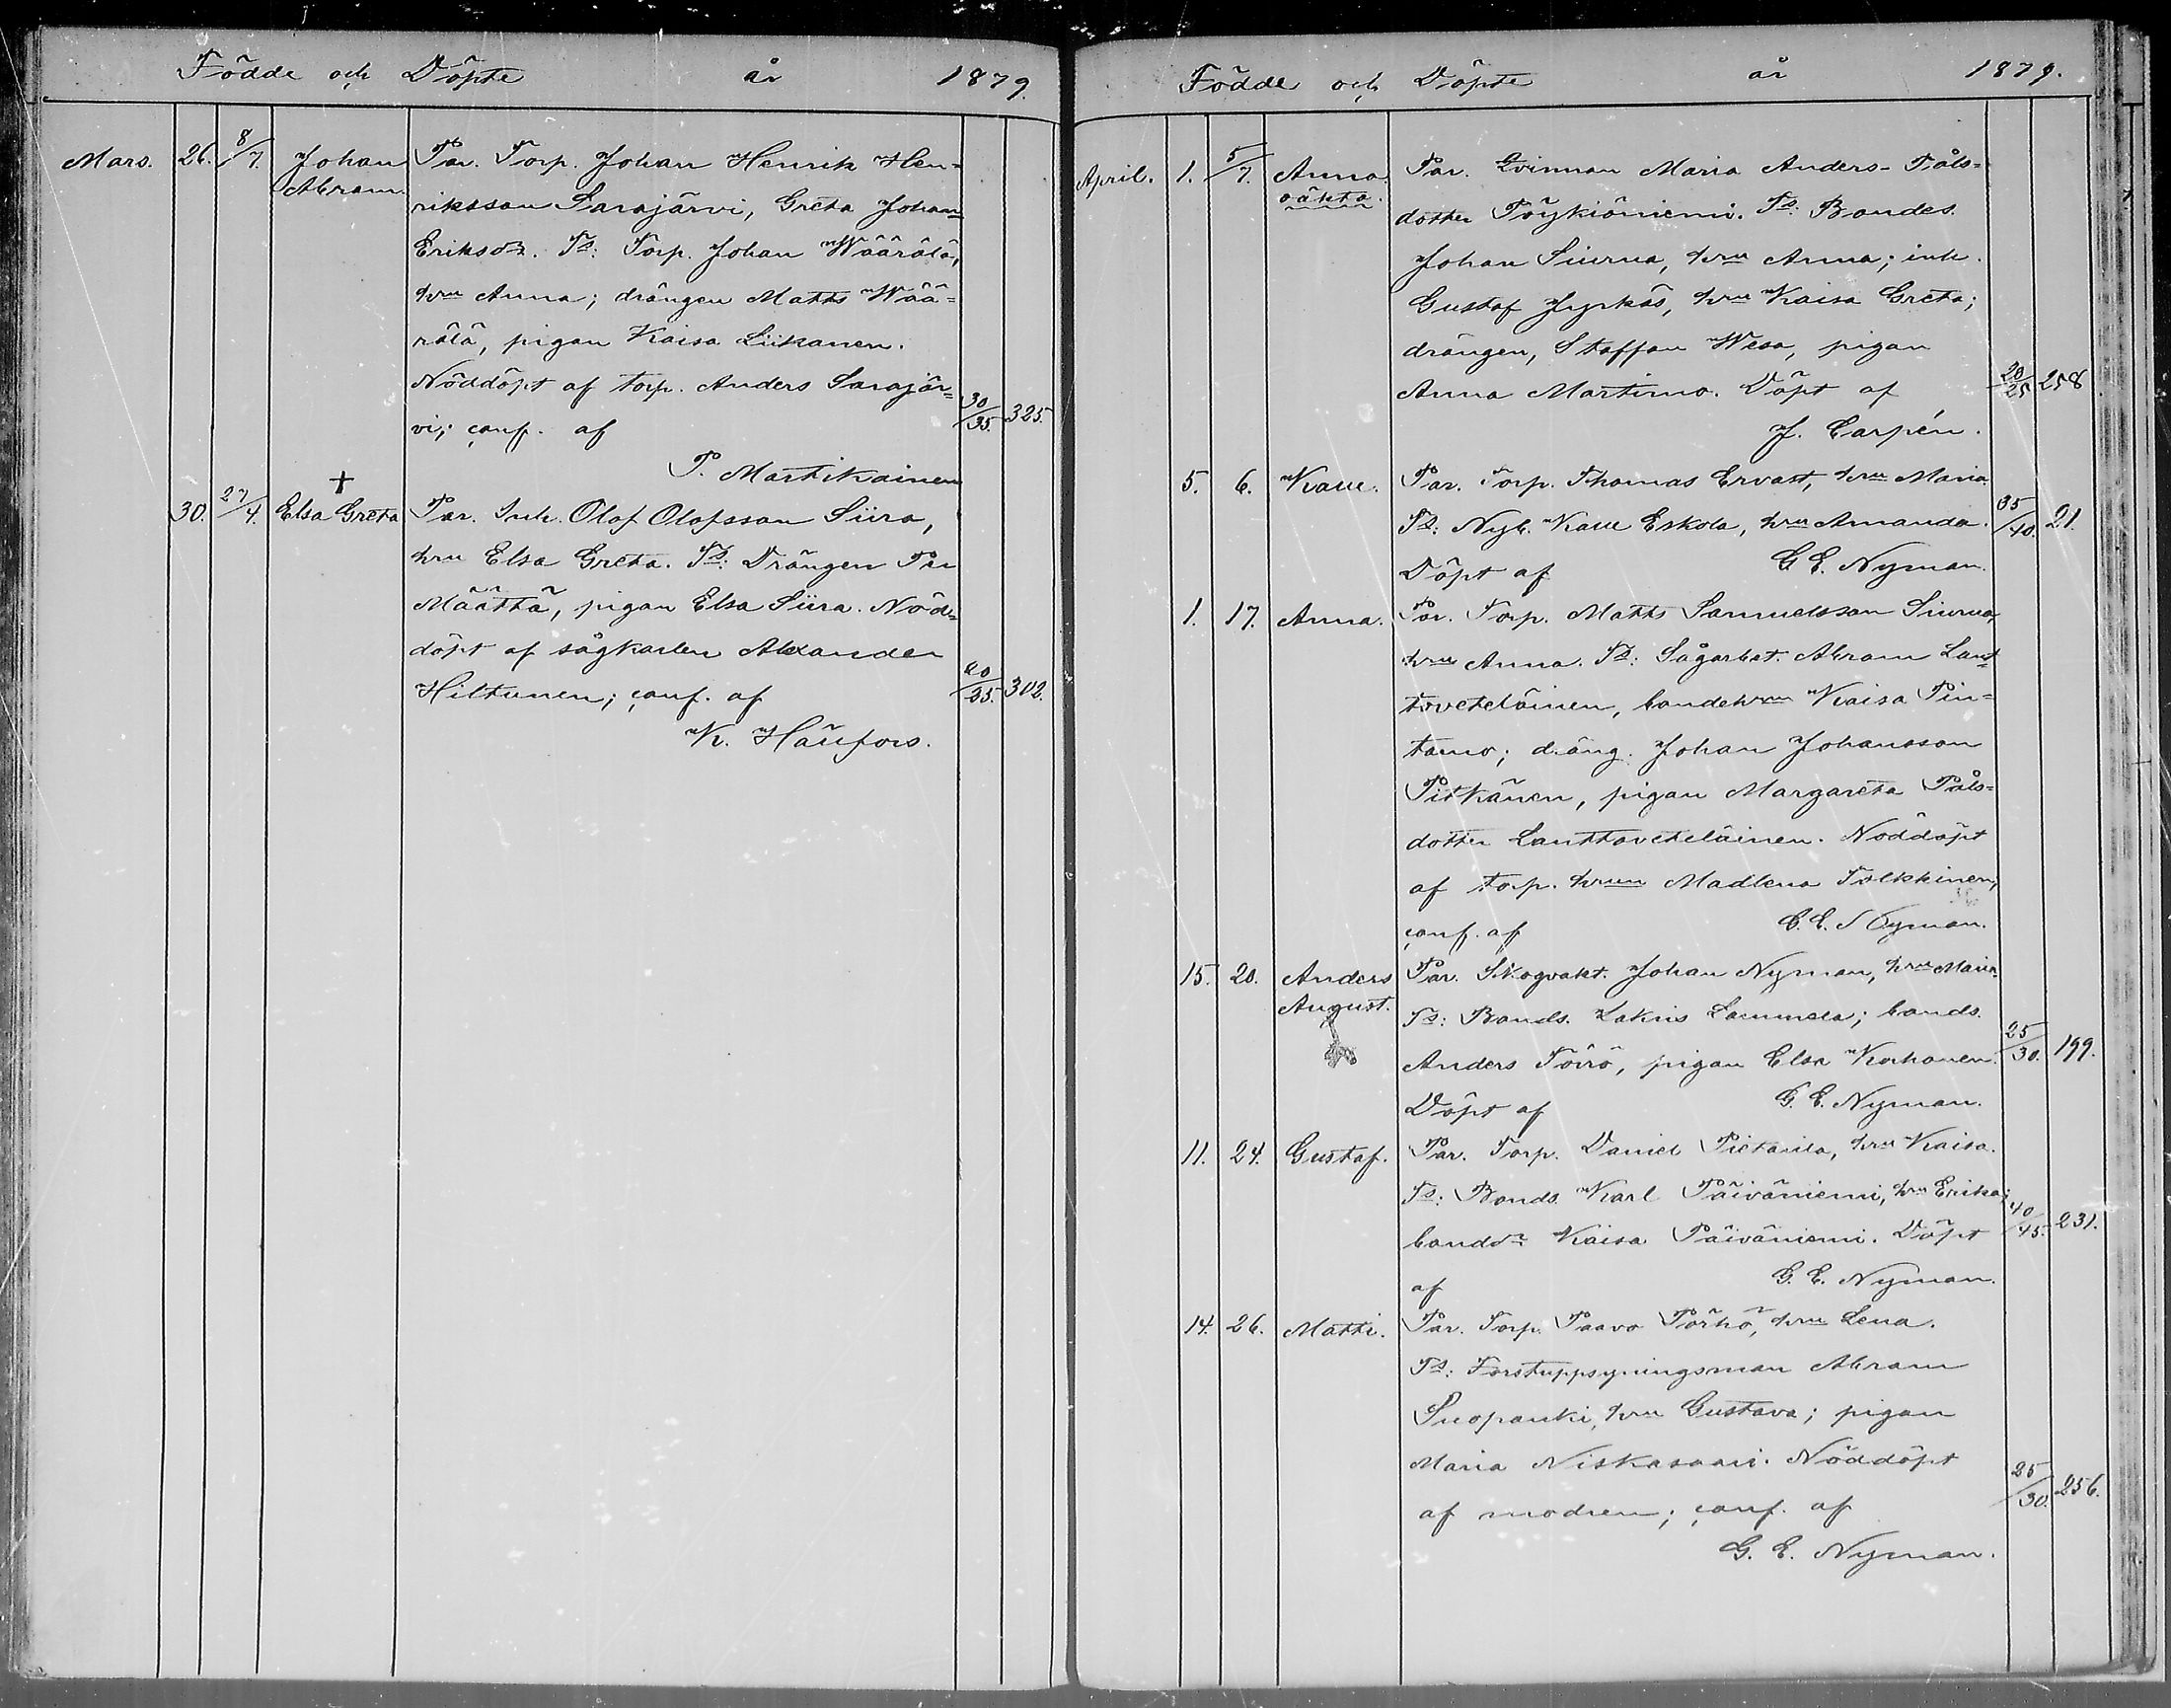 Födde och Döpte år 1879.
Mars. 26. 8/7. Johan Abram. Par. Torp. Johan Henrik Hen-
riksson Sarajärvi, Greta Johan
Eriksdr. Ts: Torp. Johan Wäärälä,
hru Anna; drängen Matts Wää-
rälä, pigan Kaisa Liikanen.
Nöddöpt af torp. Anders Sarajär-
vi; conf. af 30/35. 325.
P. Martikainen
30. 27/4. + Elsa Greta Par. Inh. Olof Olofsson Siira,
hru Elsa Greta. Ts: Drängen Per
Määttä, pigan Elsa Siira. Nöd-
döpt af sågkarlen Alexander
Hiltunen; conf. af 20/35. 302.
K. Häufors.
Födde och Döpte år 1879.
April. 1. 5/7. Anna. oäkta. Par. Qvinnan Maria Anders-Påls-
dotter Pöykiöniemi. Ts: Bondes.
Johan Siurua, hru Anna; inh.
Gustaf Jyrkäs, hru Kaisa Greta;
drängen, Staffan Wesa, pigan
Anna Martimo. Döpt af 20/25 258
J. Carpén.
5. 6. Kalle. Par. Torp. Thomas Ervast, hru Maria.
Ts: Nyb. Kalle Eskola, hru Amanda. 35/40. 21.
Döpt af G. E. Nyman.
1. 17. Anna. Par. Torp. Matts Samuelsson Siurua,
hru Anna. Ts: Sågarbet. Abram Lant-
toveteläinen, bondehrun Kaisa Pin-
tamo; dräng. Johan Johansson
Pitkänen, pigan Margareta Påls-
dotter Lanttoveteläinen. Nöddöpt
af torp. hrun Madlena Tolkkinen;
conf. af G. E. Nyman.
15. 20. Anders August. Par. Skogvakt. Johan Nyman, hru Maria.
Ts: Bonds. Zakris Lammela; bonds.
Anders Törrö, pigan Elsa Korhonen. 25/30. 199.
Döpt af G. E. Nyman.
11. 24. Gustaf. Par. Torp. Daniel Pietarila, hru Kaisa.
Ts: Bonds. Karl Päiväniemi, hru Erika;
bonddr Kaisa Päiväniemi. Döpt 40/45. 231.
af G. E. Nyman.
14. 26. Matti. Par. Torp. Paavo Pörhö, hru Lena.
Ts: Forstuppsyningsman Abram
Suopanki, hru Gustava; pigan
Maria Niskasaari. Nöddöpt
af modren; conf. af 25/30. 256.
G. E. Nyman.